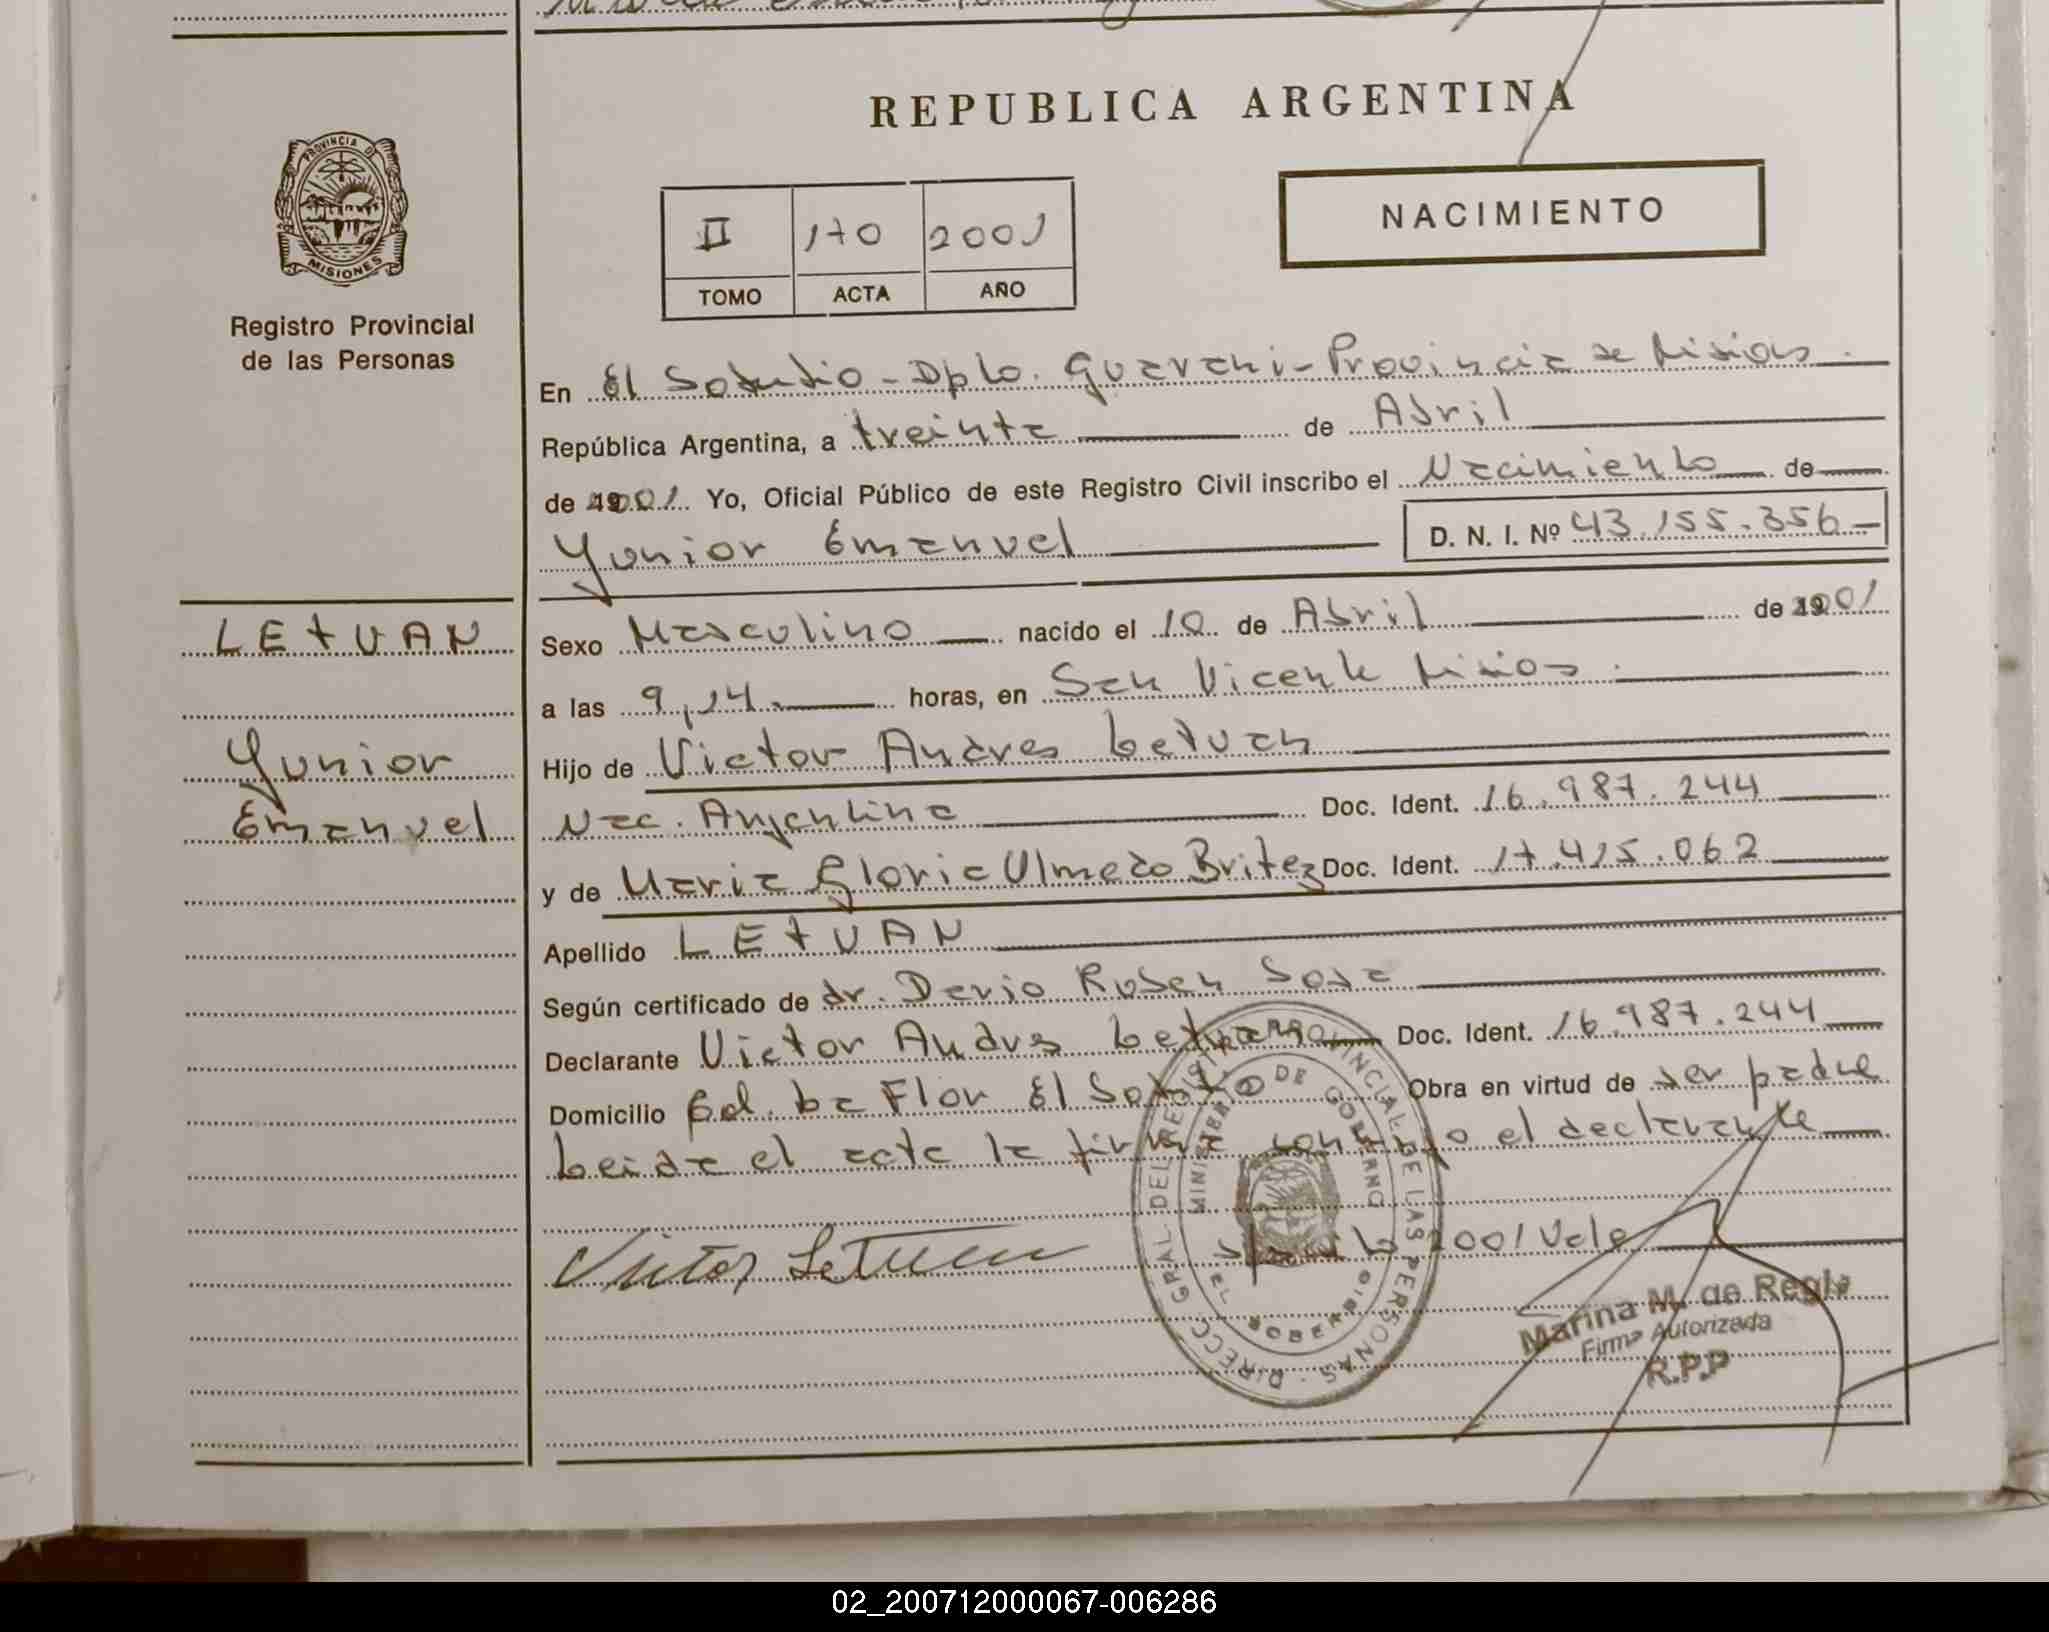 REPUBLICA ARGENTINA
PROVINCIA DE
MISIONES
Registro Provincial
de las Personas
II 170 2001
TOMO ACTA AÑO
NACIMIENTO
En El Soberbio - Dpto. Guarani - Provincia de Misiones
República Argentina, a treinta de Abril
de 2001. Yo, Oficial Público de este Registro Civil inscribo el Nacimiento de
Yunior Emanuel D. N. I. Nº 43.155.356
LETUAN
Sexo Masculino nacido el 10 de Abril de 2001
a las 9,14 horas, en San Vicente Misiones
Yunior
Emanuel
Hijo de Victor Andres Letuan
Nac. Argentina Doc. Ident. 16.987.244
y de Maria Gloria Ulmedo Britez Doc. Ident. 17.415.062
Apellido LETUAN
Según certificado de dr. Dario Ruben Sosa
Declarante Victor Andres Letuan Doc. Ident. 16.987.244
Domicilio Cd. La Flor El Soberbio Obra en virtud de ser padre
Leida el acta la firma conmigo el declarante
2001 Vale
Victor Letuan
DIRECC. GRAL. DEL REGISTRO PROVINCIAL DE LAS PERSONAS
Marina M. de Regla
Firma Autorizada
R.P.P
02_200712000067-006286